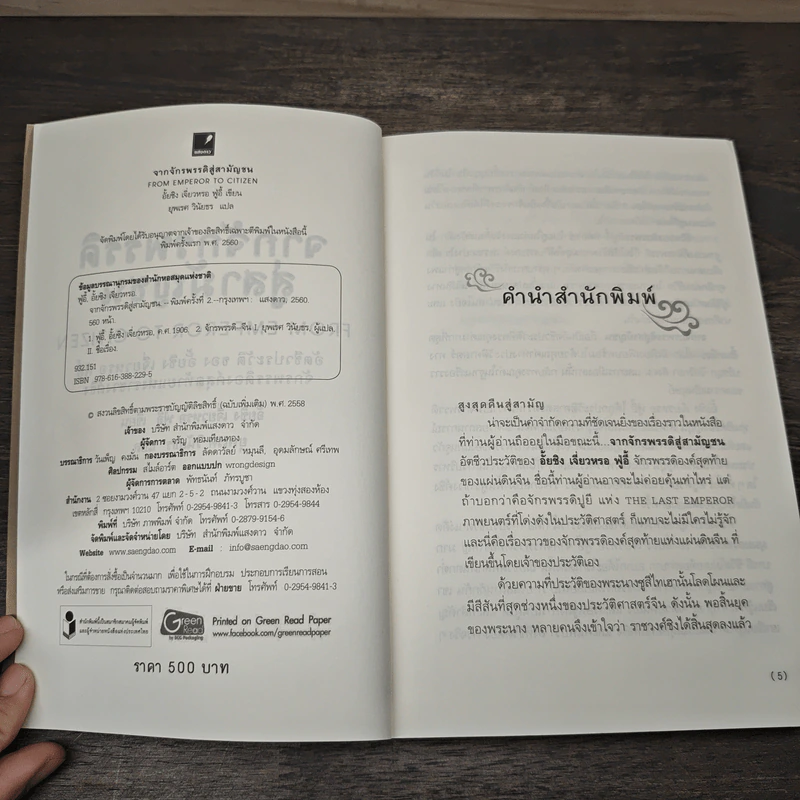 แสงดาว
จากจักรพรรดิสู่สามัญชน
FROM EMPEROR TO CITIZEN
อั้ยซิง เจี๋ยวหรอ ฟูอี้ เขียน
ยุพเรศ วินัยธร แปล
จัดพิมพ์โดยได้รับอนุญาตจากเจ้าของลิขสิทธิ์เฉพาะตีพิมพ์ในหนังสือนี้
พิมพ์ครั้งแรก พ.ศ. 2560
ข้อมูลบรรณานุกรมของสำนักหอสมุดแห่งชาติ
ฟูอี้, อั้ยซิง เจี๋ยวหรอ.
จากจักรพรรดิสู่สามัญชน. -- พิมพ์ครั้งที่ 2. -- กรุงเทพฯ : แสงดาว, 2560.
560 หน้า.
1. ฟูอี้, อั้ยซิง เจี๋ยวหรอ, ค.ศ. 1906. 2. จักรพรรดิ--จีน I. ยุพเรศ วินัยธร, ผู้แปล.
II. ชื่อเรื่อง.
932.151
ISBN 978-616-388-229-5
© สงวนลิขสิทธิ์ตามพระราชบัญญัติลิขสิทธิ์ (ฉบับเพิ่มเติม) พ.ศ. 2558
เจ้าของ บริษัท สำนักพิมพ์แสงดาว จำกัด
ผู้จัดการ จรัญ หอมเทียนทอง
บรรณาธิการ วันเพ็ญ คงมั่น กองบรรณาธิการ ลัดดาวัลย์ หมุนลี, อุดมลักษณ์ ศรีเทพ
ศิลปกรรม สไมล์อาร์ต ออกแบบปก wrongdesign
ผู้จัดการการตลาด พัทธนันท์ ภัทรบูชา
สำนักงาน 2 ซอยงามวงศ์วาน 47 แยก 2 - 5 - 2 ถนนงามวงศ์วาน แขวงทุ่งสองห้อง
เขตหลักสี่ กรุงเทพฯ 10210 โทรศัพท์ 0-2954-9841-3 โทรสาร 0-2954-9844
พิมพ์ที่ บริษัท ภาพพิมพ์ จำกัด โทรศัพท์ 0-2879-9154-6
จัดพิมพ์และจัดจำหน่ายโดย บริษัท สำนักพิมพ์แสงดาว จำกัด
Website www.saengdao.com E-mail : info@saengdao.com
ในกรณีที่ต้องการสั่งซื้อเป็นจำนวนมาก เพื่อใช้ในการฝึกอบรม ประกอบการเรียนการสอน
หรือส่งเสริมการขาย กรุณาติดต่อสอบถามราคาพิเศษได้ที่ ฝ่ายขาย โทรศัพท์ 0-2954-9841-3
สำนักพิมพ์นี้เป็นสมาชิกสมาคมผู้จัดพิมพ์
และผู้จำหน่ายหนังสือแห่งประเทศไทย
Green
Read
by SCG Packaging
Printed on Green Read Paper
www.facebook.com/greenreadpaper
ราคา 500 บาท
คำนำสำนักพิมพ์
สูงสุดคืนสู่สามัญ
น่าจะเป็นคำจำกัดความที่ชัดเจนยิ่งของเรื่องราวในหนังสือ
ที่ท่านผู้อ่านถืออยู่ในมือขณะนี้...จากจักรพรรดิสู่สามัญชน
อัตชีวประวัติของ อั้ยซิง เจี๋ยวหรอ ฟูอี้ จักรพรรดิองค์สุดท้าย
ของแผ่นดินจีน ชื่อนี้ท่านผู้อ่านอาจจะไม่ค่อยคุ้นเท่าไหร่ แต่
ถ้าบอกว่าคือจักรพรรดิปูยี แห่ง THE LAST EMPEROR
ภาพยนตร์ที่โด่งดังในประวัติศาสตร์ ก็แทบจะไม่มีใครไม่รู้จัก
และนี่คือเรื่องราวของจักรพรรดิองค์สุดท้ายแห่งแผ่นดินจีน ที่
เขียนขึ้นโดยเจ้าของประวัติเอง
ด้วยความที่ประวัติของพระนางซูสีไทเฮานั้นโลดโผนและ
มีสีสันที่สุดช่วงหนึ่งของประวัติศาสตร์จีน ดังนั้น พอสิ้นยุค
ของพระนาง หลายคนจึงเข้าใจว่า ราชวงศ์ชิงได้สิ้นสุดลงแล้ว
(5)